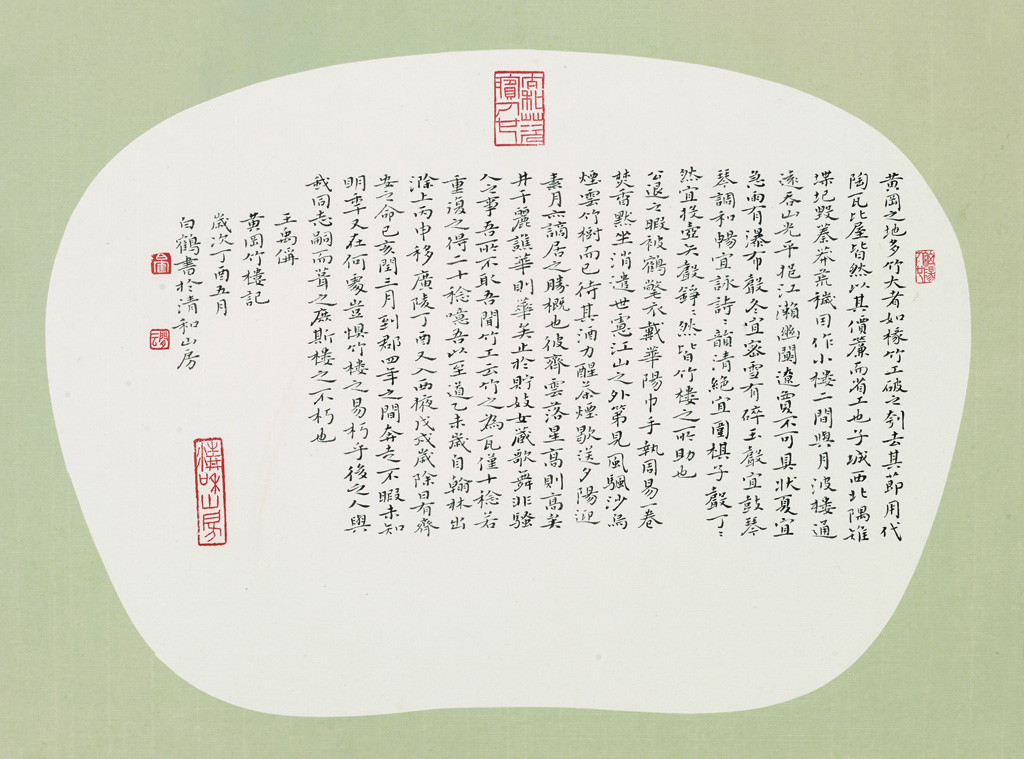 黃岡之地多竹大者如椽竹工破之刳去其節用代
陶瓦比屋皆然以其價廉而省工也子城西北隅雉
堞圮毀蓁莽荒穢因作小樓二間與月波樓通
遠吞山光平挹江瀨幽闃遼夐不可具狀夏宜
急雨有瀑布聲冬宜密雪有碎玉聲宜鼓琴
琴調和暢宜詠詩〻韻清絕宜圍棋子聲丁〻
然宜投壺矢聲錚〻然皆竹樓之所助也
公退之暇被鶴氅衣戴華陽巾手執周易一卷
焚香默坐消遣世慮江山之外第見風颿沙鳥
煙雲竹樹而已待其酒力醒茶煙歇送夕陽迎
素月亦謫居之勝概也彼齊雲落星高則高矣
井干麗譙華則華矣止於貯妓女藏歌舞非騷
人之事吾所不取吾聞竹工云竹之為瓦僅十稔若
重復之得二十稔噫吾以至道乙未歲自翰林出
滁上丙申移廣陵丁酉又入西掖戊戌歲除日有齊
安之命己亥閏三月到郡四年之間奔走不暇未知
明年又在何處豈懼竹樓之易朽乎後之人與
我同志嗣而葺之庶斯樓之不朽也
王禹偁
黃岡竹樓記
歲次丁酉五月
白鶴書於清和山房